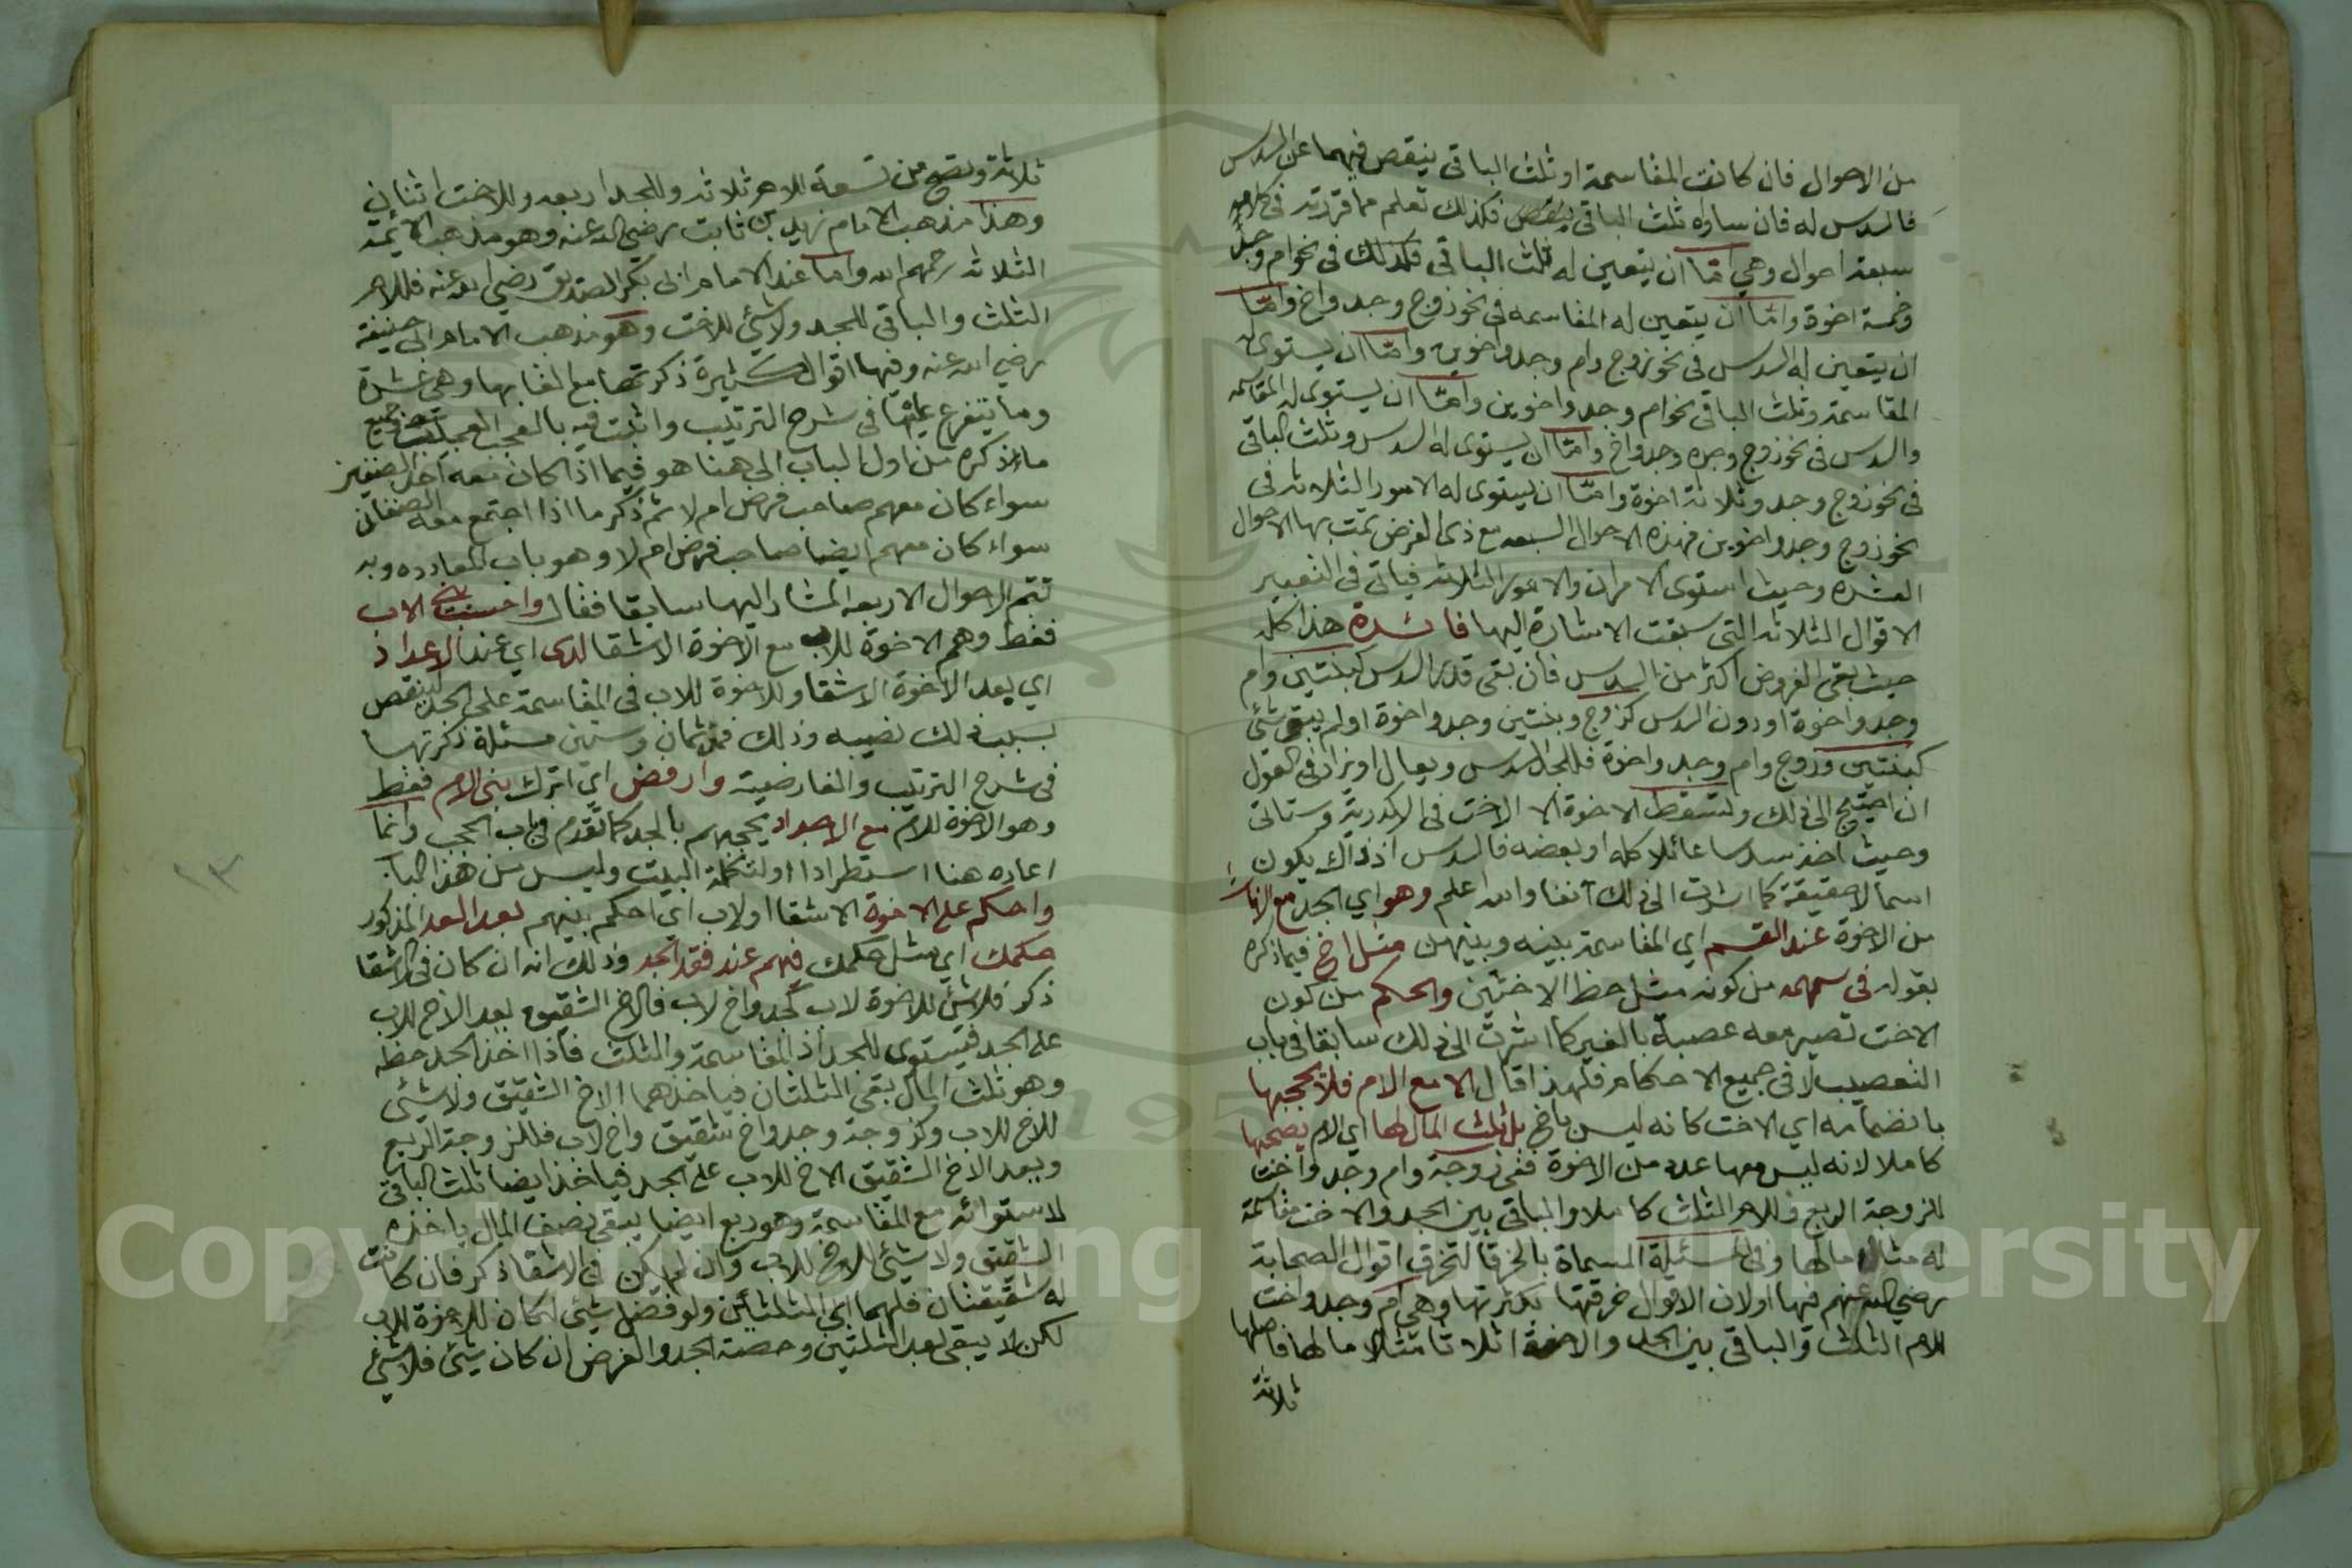 من الاحوال فان كانت المقاسمة او ثلث الباقي ينقص فيهما عن السدس
فالسدس له فان ساواه ثلث الباقي فكذلك تعلم مما قررته في كلامه
سبعة احوال وهي امّا ان يتعين له ثلث الباقي فكذلك في نحو ام وجد
وخمسة اخوة وامّا ان يتعين له المقاسمه في نحو زوج وجد واخ وامّا
ان يتعين له السدس في نحو زوج وام وجد واخوين وامّا ان يستوى له
المقاسمة وثلث الباقي نحو ام وجد واخوين وامّا ان يستوى له المقاسمه
والسدس في نحو زوج وجده وجد واخ وامّا ان يستوى له السدس وثلث الباقي
في نحو زوج وجد وثلاثة اخوة وامّا ان يستوى له الامور الثلاثه في
نحو زوج وجد واخوين فهذه الاحوال السبعه مع ذى الفرض تمت بها الاحوال
العشره وحيث استوى الامران والامور الثلاثه فياتي في التعبير
الاقوال الثلاثه التي سبقت الاشارة اليها فائدة هذا كله
حيث بقى الفروض اكثر من السدس فان بقى قدر السدس كبنتين وام
وجد واخوة او دون السدس كزوج وبنتين وجد واخوة او لم يبق شئ
كبنتين وزوج وام وجد واخوة فللجد السدس ويعال او يزاد في العول
ان احتيج الى ذلك وتسقط الاخوة الا الاخت في الاكدرية وستاتي
وحيث اخذ سدسا عائلا كله او بعضه فالسدس اذ ذاك يكون
اسما لا حقيقة كما اشرت الى ذلك آنفا والله اعلم وهو اي الجد مع الاناث
من الاخوة عند القسم اي المقاسمة بينه وبينهن مثل اخ فيما ذكره
بقوله في سهمه من كونه مثل حظ الاختين والحكم من كون
الاخت تصير معه عصبة بالغير كما اشرت الى ذلك سابقا في باب
التعصيب لا في جميع الاحكام فلهذا قال الا مع الام فلا يحجبها
بانضمامه اي الاخت كانه ليس باخ بل ثلث المال لها اي الام يصحبها
كاملا لانه ليس معها عدد من الاخوة ففي زوجة وام وجد واخت
للزوجة الربع وللام الثلث كاملا والباقي بين الجد والاخت مقاسمة
له مثلا ما لها وفي المسئلة المسماة بالخرقا لتخرق اقوال الصحابة
رضي الله عنهم فيها او لان الاقوال خرقتها بكثرتها وهي ام وجد واخت
للام الثلث والباقي بين الجد والاخت اثلاثا مثلا ما لها فاصلها
ثلاثة
ثلاثة وتصح من تسعة للام ثلاثه وللجد اربعه وللاخت اثنان
وهذا مذهب الامام زيد بن ثابت رضي الله عنه وهو مذهب الائمة
الثلاثه رحمهم الله واما عند الامام ابى بكر الصديق رضي الله عنه فللام
الثلث والباقي للجد ولا شئ للاخت وهو مذهب الامام ابى حنيفة
رضي الله عنه وفيها اقوال كثيرة ذكرتها مع القابها وهي عشرة
وما يتفرع عليها في شرح الترتيب واتيت فيه بالعجب العجاب جميع
ما ذكره من اول الباب الى هنا هو فيما اذا كان معه احد الصنفين
سواء كان معهم صاحب فرض ام لا ثم ذكر ما اذا اجتمع معه الصنفان
سواء كان معهم ايضا صاحب فرض ام لا وهو باب المعادده وبه
تتم الاحوال الاربعه المشار اليها سابقا فقال واحسب بني الاب
فقط وهم الاخوة للاب مع الاخوة الاشقا لدى اي عند الاعداد
اي يعد الاخوة الاشقاء الاخوة للاب في المقاسمة على الجد لينقص
بسبب ذلك نصيبه وذلك في ثمان وستين مسئلة ذكرتها
في شرح الترتيب والفارضية وارفض اي اترك بني الام فقط
وهو الاخوة للام مع الاجداد لحجبهم بالجد كما تقدم في باب الحجب وانما
اعاده هنا استطرادا او لتكملة البيت وليس من هذا الباب
واحكم على الاخوة الاشقا او لاب اي احكم بينهم بعد العد المذكور
حكمك اي مثل حكمك فيهم عند فقد الجد وذلك انه ان كان في الاشقا
ذكر فلا شئ للاخوة لاب كجد واخ لاب فالاخ الشقيق يعد الاخ للاب
على الجد فيستوى للجد اذ المقاسمة والثلث فاذا اخذ الجد حظه
وهو ثلث المال بقى الثلثان فياخذهما الاخ الشقيق ولا شئ
للاخ للاب وكزوجة وجد واخ شقيق واخ لاب فللزوجة الربع
ويعد الاخ الشقيق الاخ للاب على الجد فياخذ ايضا ثلث الباقي
لاستوائه مع المقاسمة وهو ربع ايضا يبقى نصف المال ياخذه
الشقيق ولا شئ للاخ للاب وان لم يكن في الاشقا ذكر فان كانت
له شقيقتان فلهما الى الثلثين ولو فضل شئ لكان للاخوة للاب
لكن لا يبقى بعد الثلثين وحصة الجد والفرض ان كان شئ فلا شئ
١٣